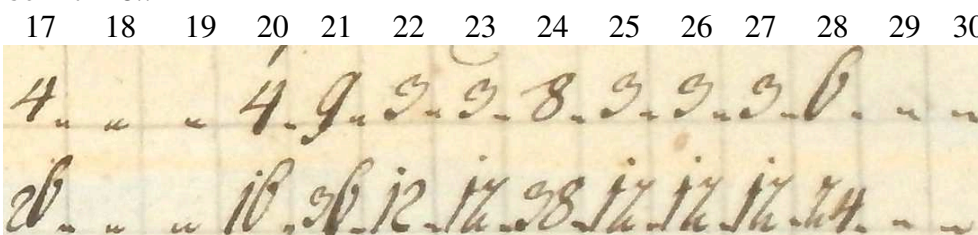 17 18 19 20 21 22 23 24 25 26 27 28 29 30
4 „ „ „ 4 . 9 „ 3 „ 3 . 8 . 3 . 3 . 3 . 6 . „ „
26 „ „ „ 16 . 36 „ 12 . 12 . 38 . 12 . 12 . 12 . 24 . „ „